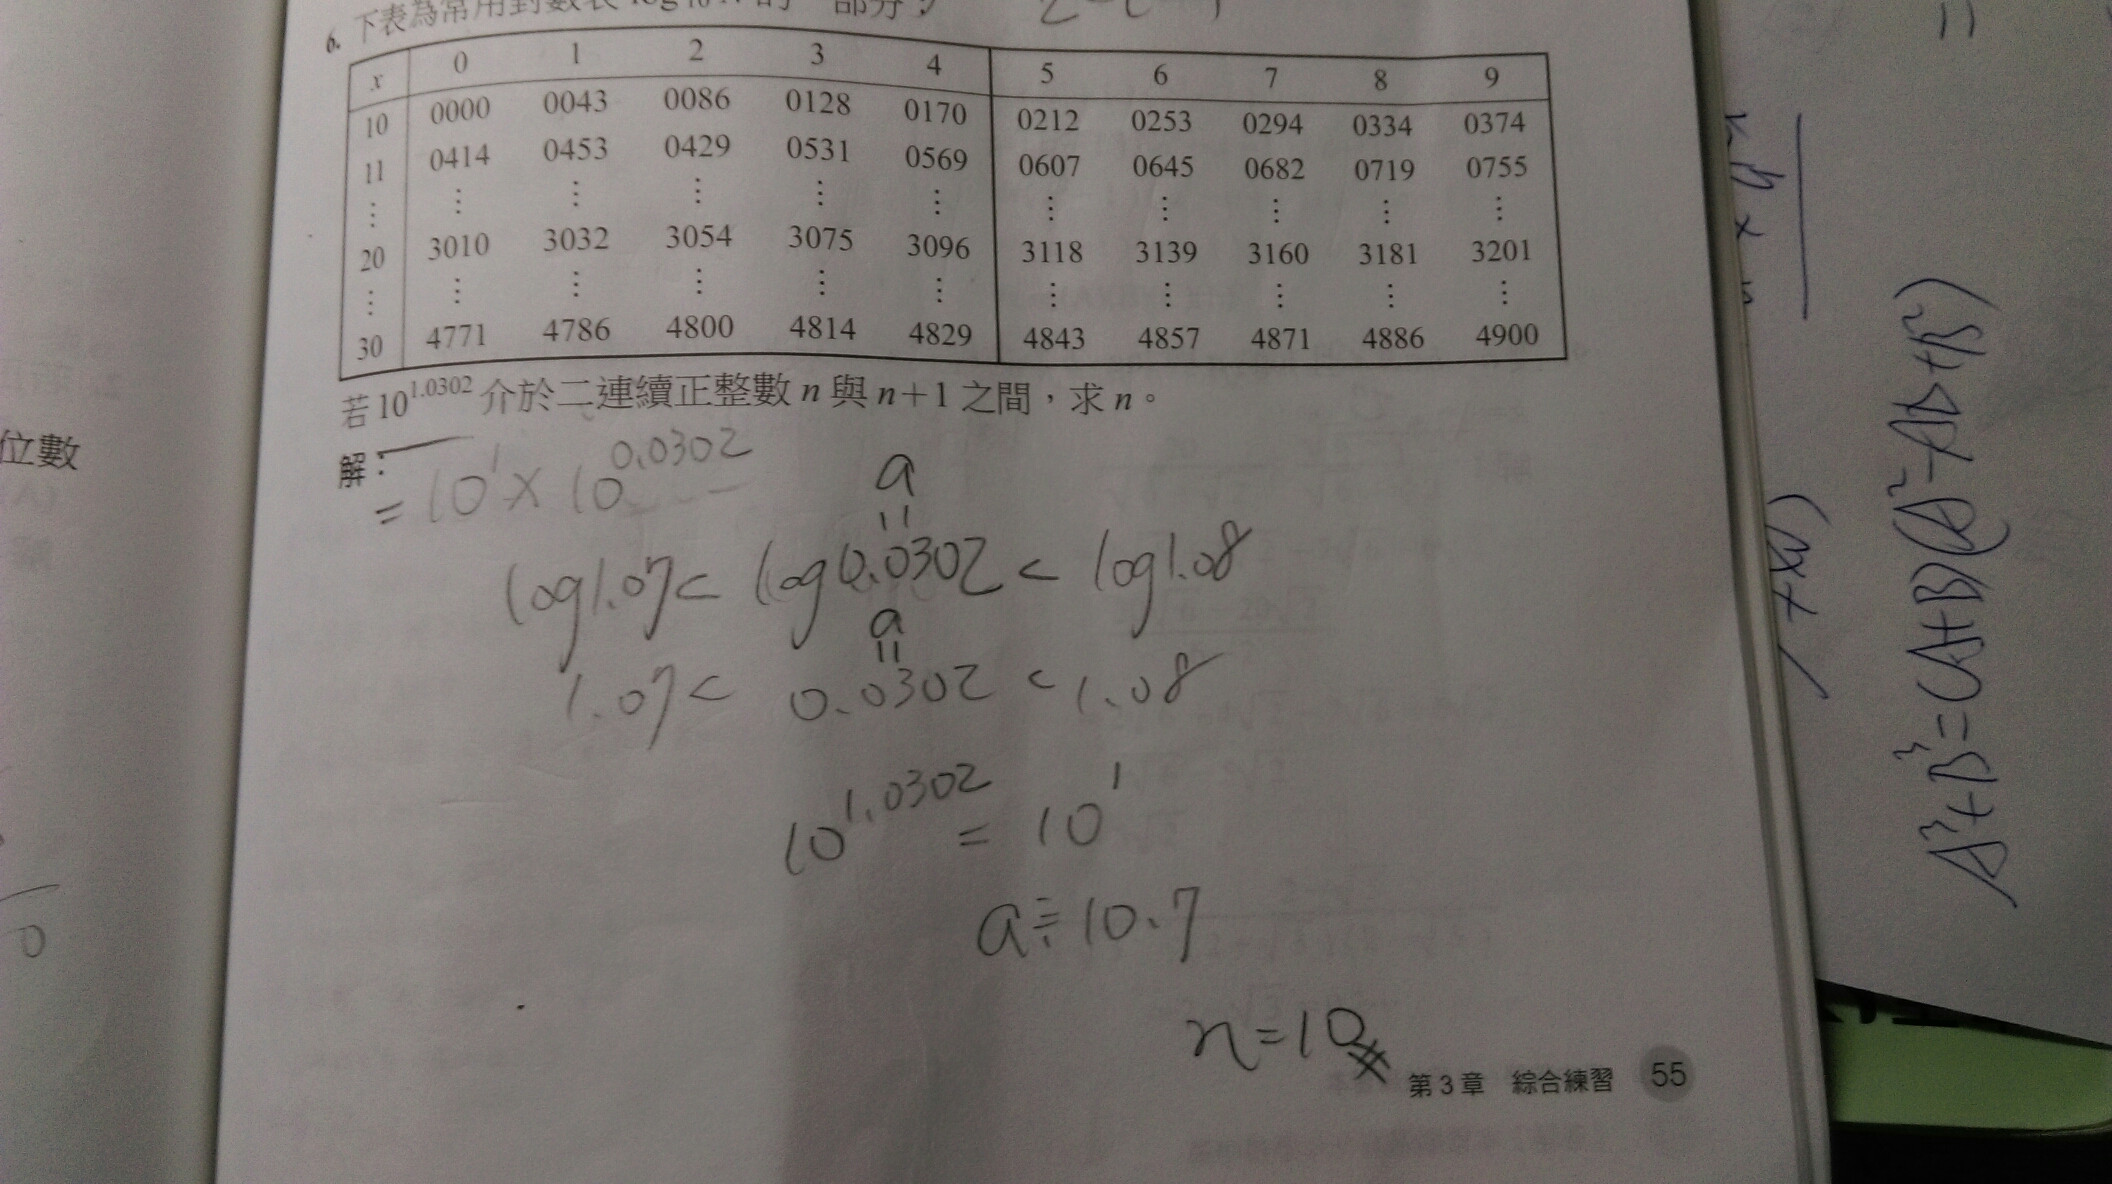 6. 下表為常用對數表 的一部分:
x 0 1 2 3 4 5 6 7 8 9
10 0000 0043 0086 0128 0170 0212 0253 0294 0334 0374
11 0414 0453 0429 0531 0569 0607 0645 0682 0719 0755
⋮ ⋮ ⋮ ⋮ ⋮ ⋮ ⋮ ⋮ ⋮ ⋮ ⋮
20 3010 3032 3054 3075 3096 3118 3139 3160 3181 3201
⋮ ⋮ ⋮ ⋮ ⋮ ⋮ ⋮ ⋮ ⋮ ⋮ ⋮
30 4771 4786 4800 4814 4829 4843 4857 4871 4886 4900
若 10^1.0302 介於二連續正整數 n 與 n+1 之間,求 n。
解:
= 10^1 × 10^0.0302
a
=
log1.07 < log0.0302 < log1.08
a
=
1.07 < 0.0302 < 1.08
10^1.0302 = 10^1
a ≒ 10.7
n=10#
第 3 章 綜合練習 55
位數
0
A³+B³=(A+B)(A²-AB+B²)